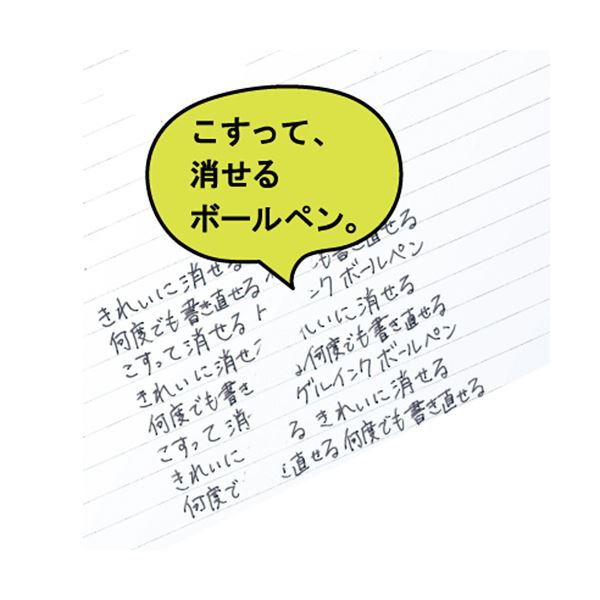 こすって、
消せる
ボールペン。
も書き直せる
きれいに消せる
ンク ボールペン
何度でも書き直せる
いに消せる
こすって消せる
何度でも書き直せる
きれいに消せ
ゲルインクボールペン
何度でも書き
る きれいに消せる
こすって消
直せる何度でも書き直せる
きれいに
何度で